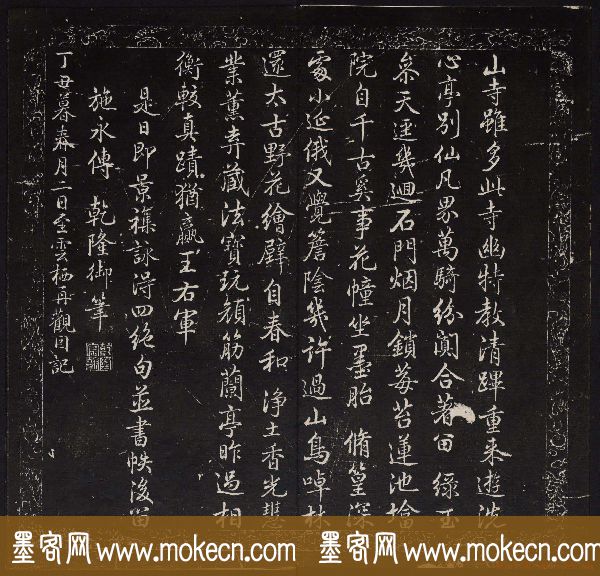 山寺雖多此寺幽特教清蹕重来遊洗
心亭別仙凡界萬騎紛闐合著留 緑玉
叅天逕幾迴石門烟月鎖莓苔蓮池
院自千古奚事花幢坐墨胎 脩篁深
處小延俄又覺簷陰幾許過山鳥啅林
還太古野花繪壁自春和 浄土香光慧
業薰弆藏法寳玩筋蘭亭昨過相
衡較真蹟猶贏王右軍
是日即景襍詠得四絶句並書帙後留
施永傳 乾隆御筆
丁丑暮春月二日至雲栖再觀因記
墨客网 www.mokecn.com 墨客网 www.mokecn.com